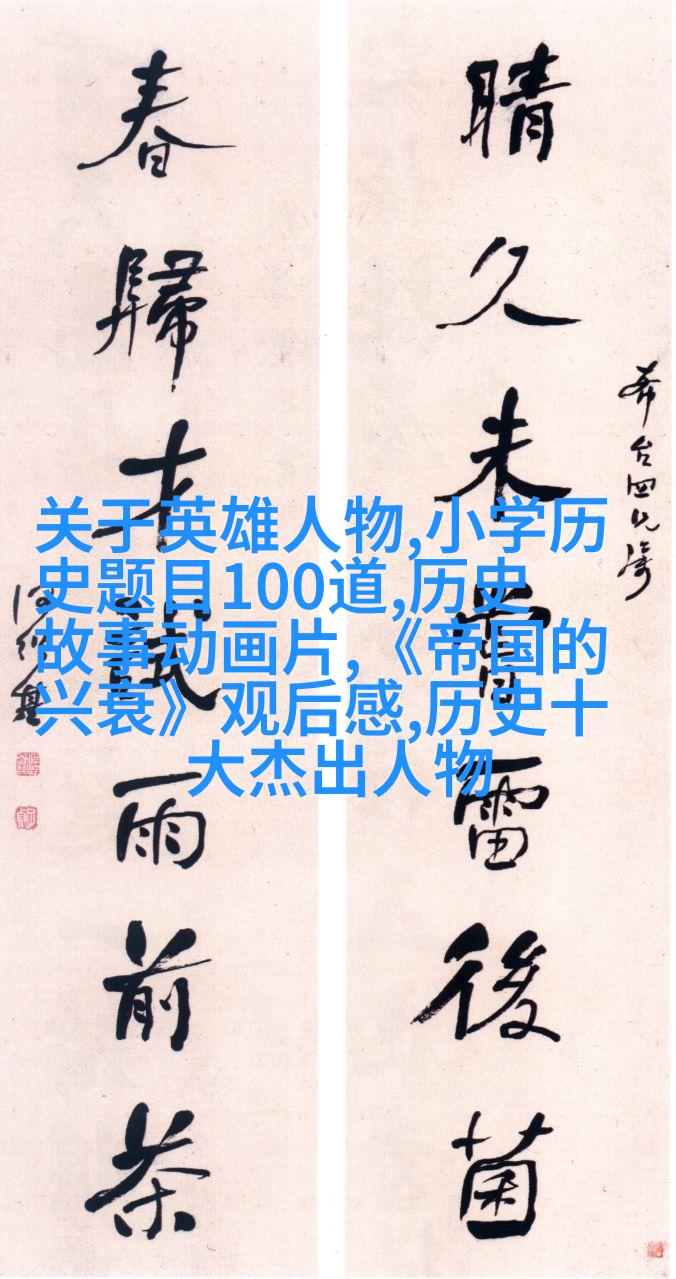 晴久未嘗雷後菌
春歸才試雨前茶
何紹基
关于英雄人物,小学历
史题目100道,历史
故事动画片,《帝国的
兴衰》观后感,历史十
大杰出人物